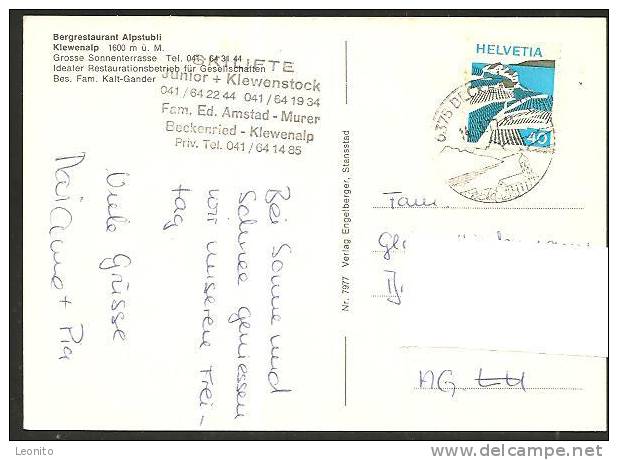 Bergrestaurant Alpstubli
Klewenalp 1600 m ü. M.
Grosse Sonnenterrasse Tel. 041 - 64 31 44
Idealer Restaurationsbetrieb für Gesellschaften
Bes. Fam. Kalt-Gander
SKILIFTE
Junior + Klewenstock
041 / 64 22 44 041 / 64 19 34
Fam. Ed. Amstad - Murer
Beckenried - Klewenalp
Priv. Tel. 041 / 64 14 85
Bei Sonne und
Schnee geniessen
wir unseren Frei-
tag.
Viele Grüsse
+ Pia
Nr. 7977 Verlag Engelberger, Stansstad
HELVETIA
40
6375
Fam.
AG LU
Leonito
www.delcampe.net